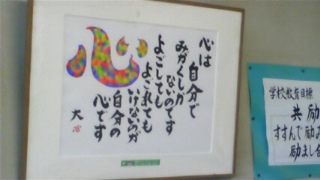 心は
自分で
みがくしか
ないのです
よごしても
よごれても
いけないのが
自分の
心です
心
学校教育目標
共励
すすんで励み
励まし合